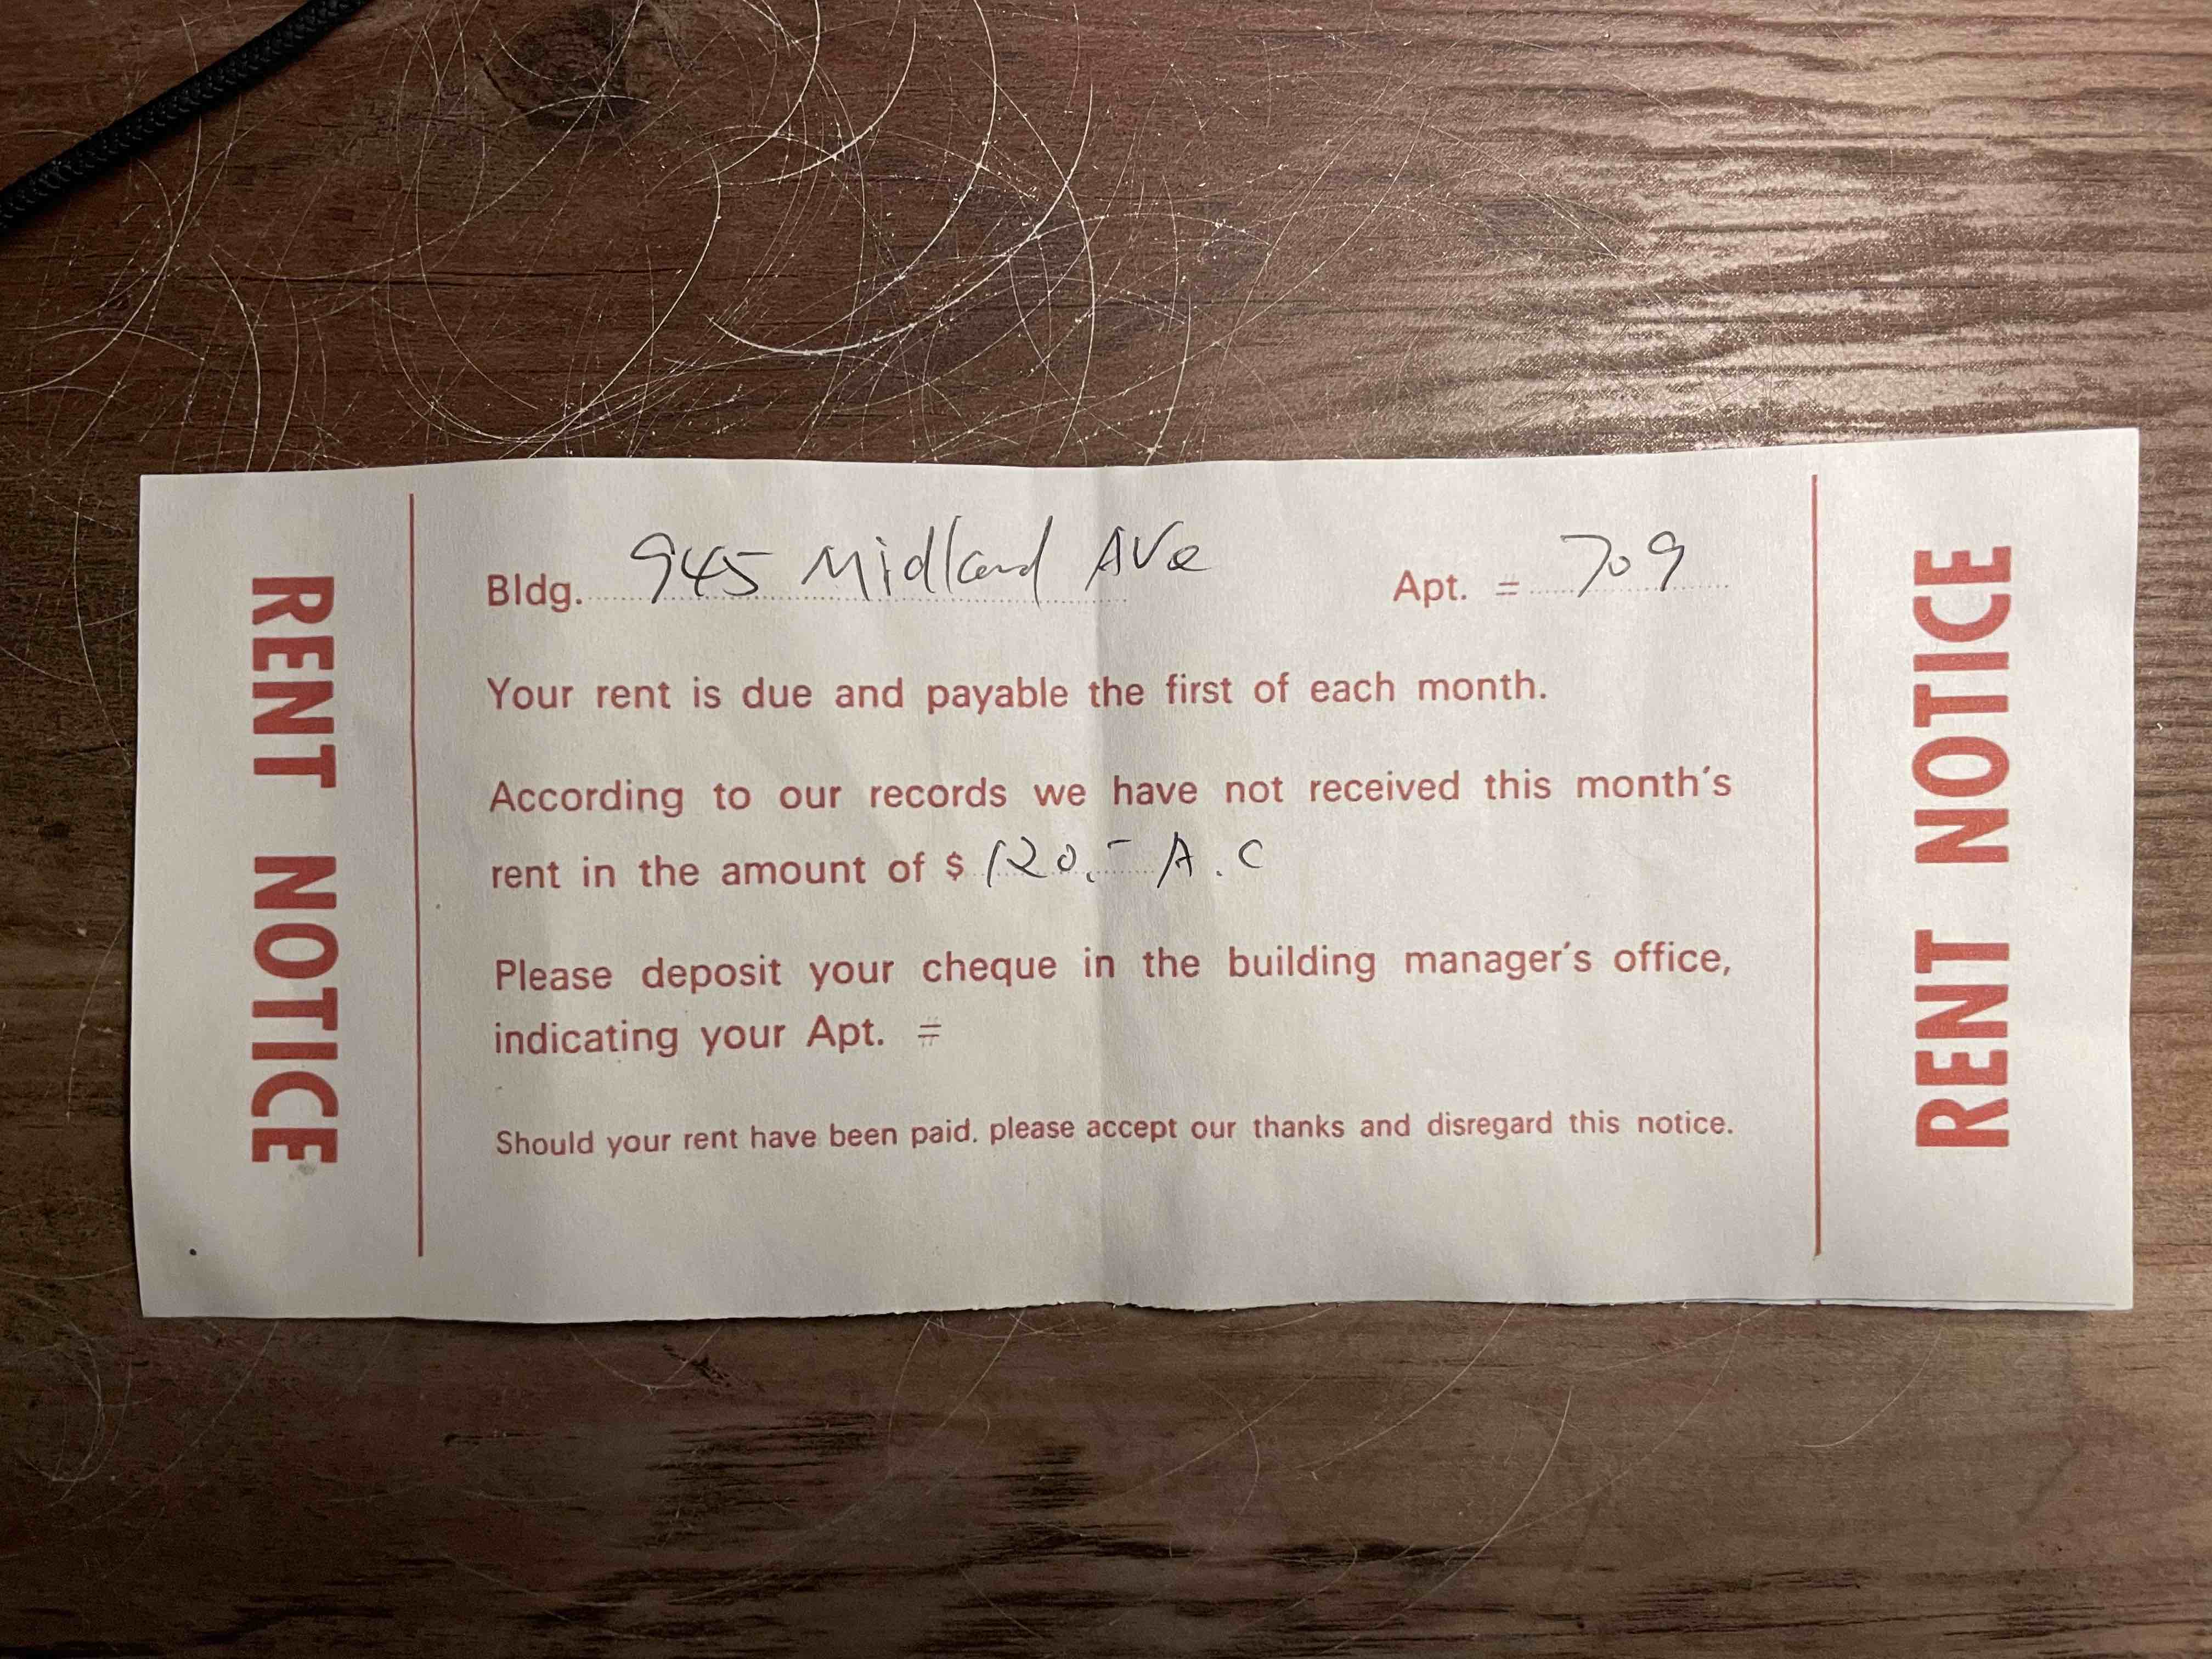 RENT NOTICE
Bldg. 945 Midland Ave Apt. = 709
Your rent is due and payable the first of each month.
According to our records we have not received this month's
rent in the amount of $ 120.- A.C
Please deposit your cheque in the building manager's office,
indicating your Apt. #
Should your rent have been paid, please accept our thanks and disregard this notice.
RENT NOTICE